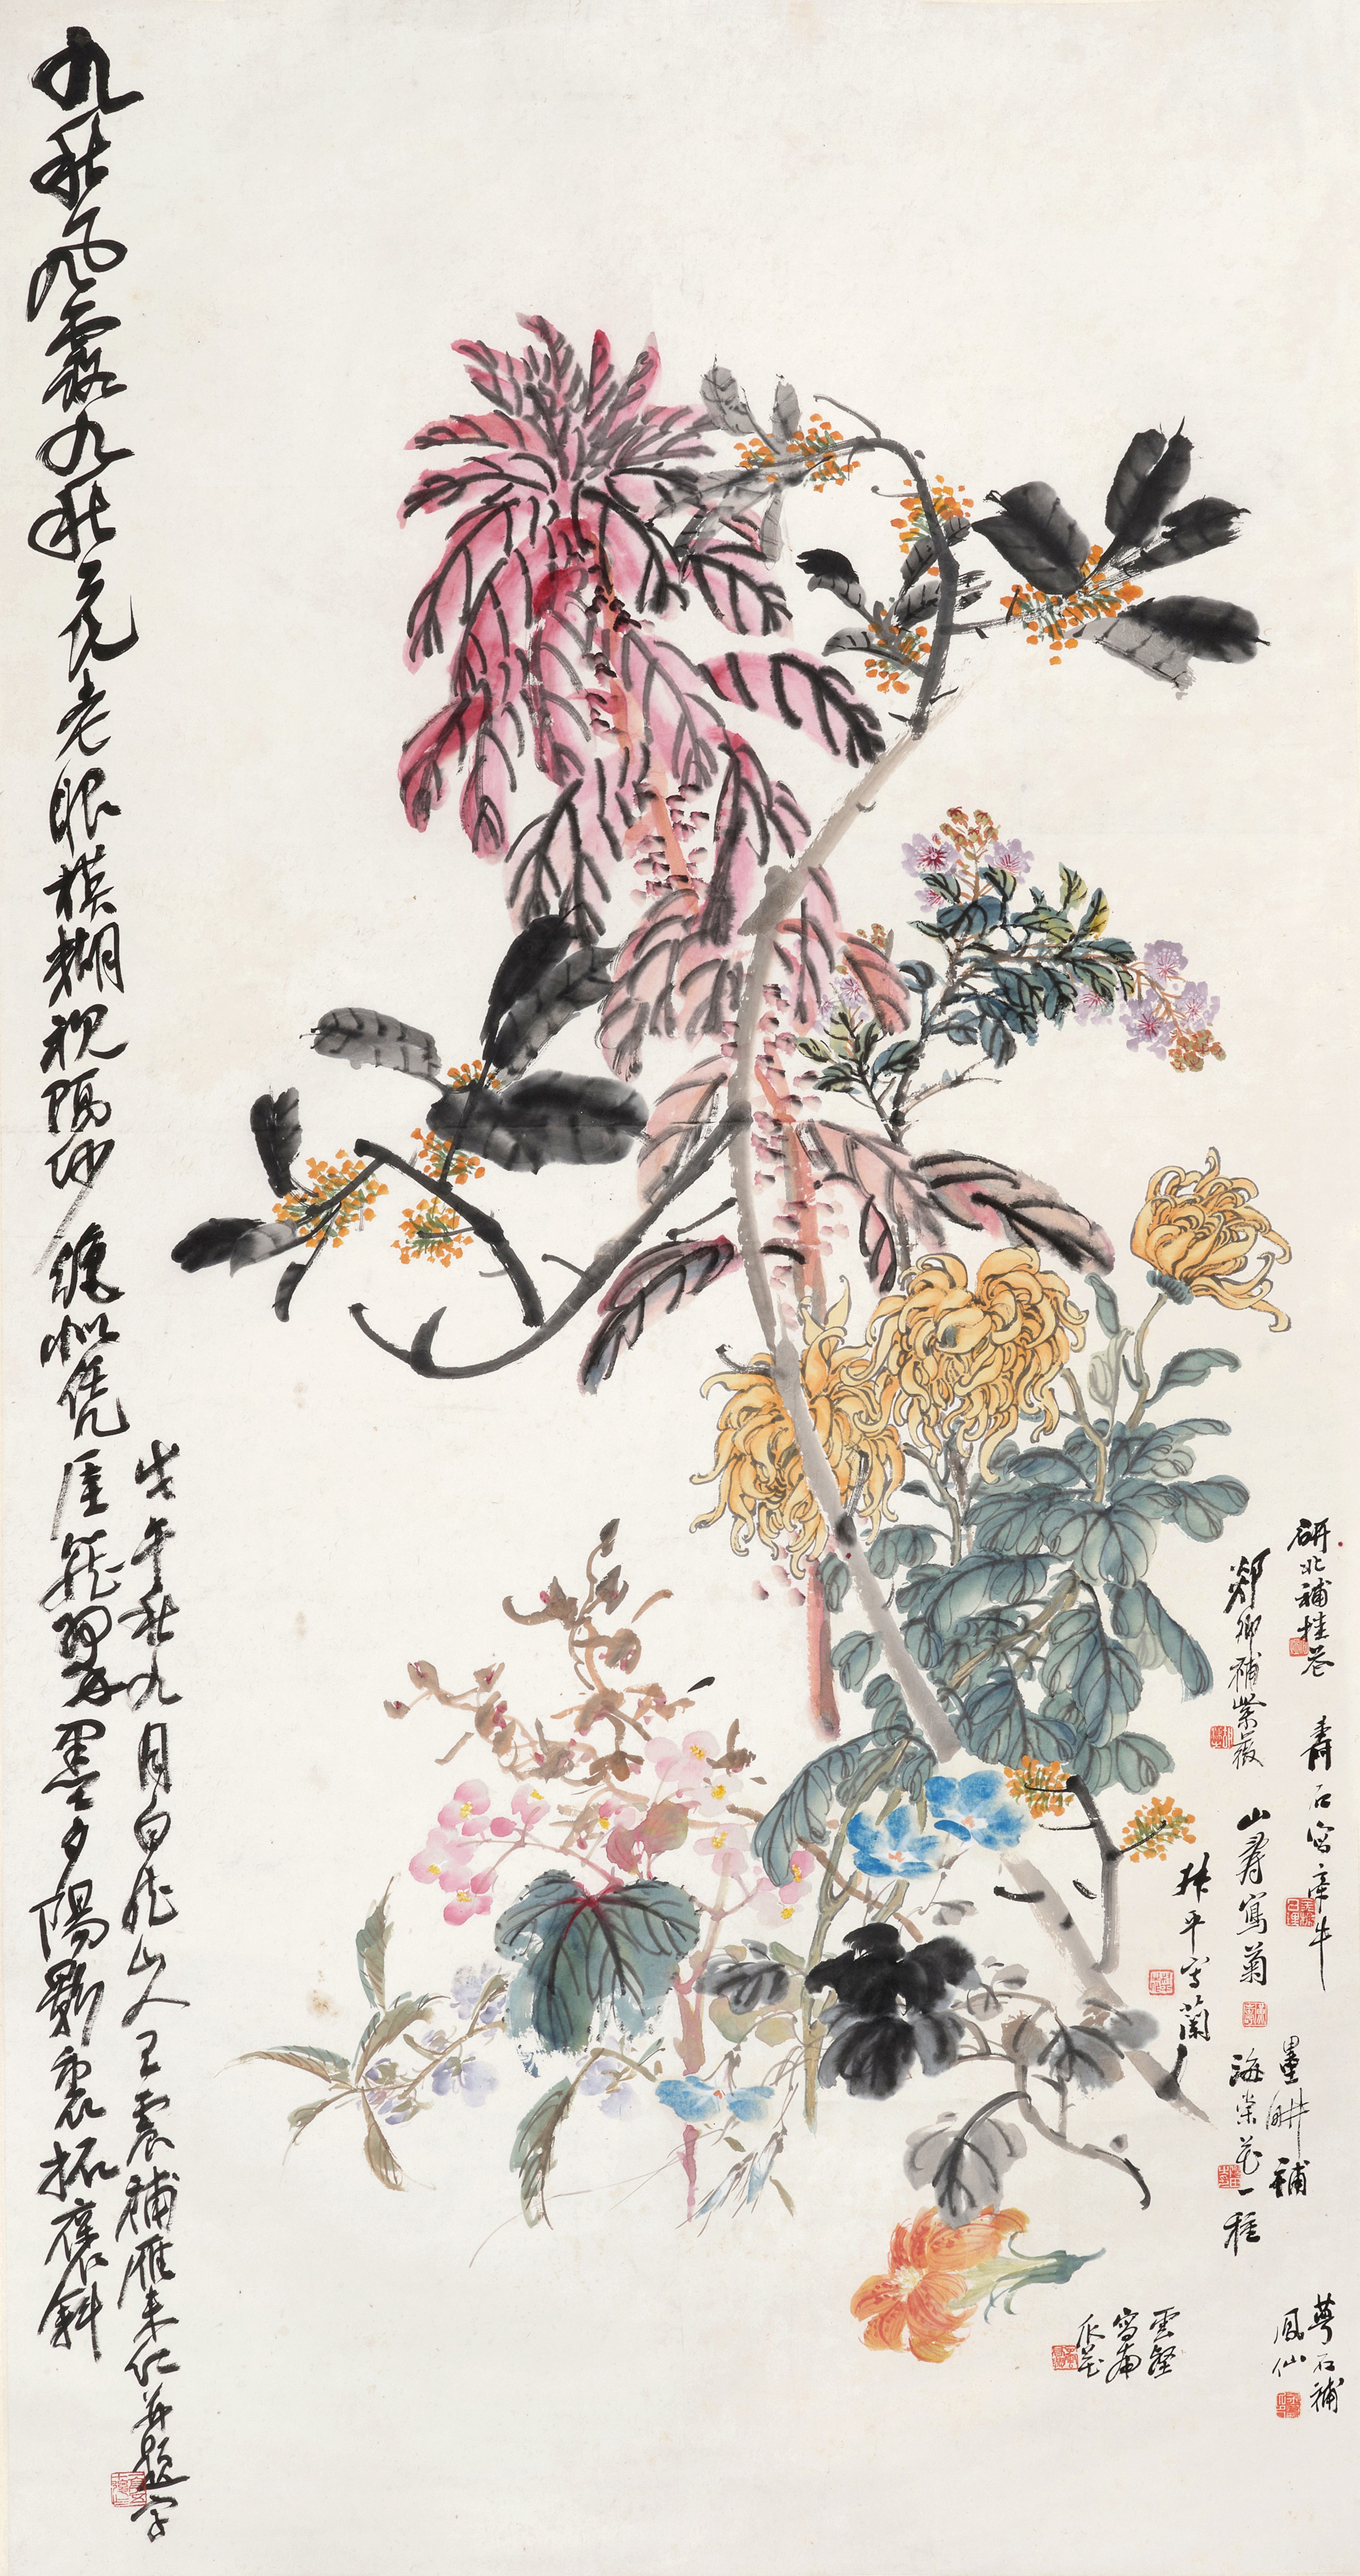 九秋風露九秋花老眼模糊視隔紗似凭崖翠墨夕陽影裏拓褒斜
戊午秋九月白龍山人王震補雁來紅并題字
研北補桂花
郯卿補紫薇
壽石寫牽牛
山壽寫菊
叔平寫蘭
墨畊補
海棠花一種
雲壑
寫南
瓜花
萼石補
鳳仙